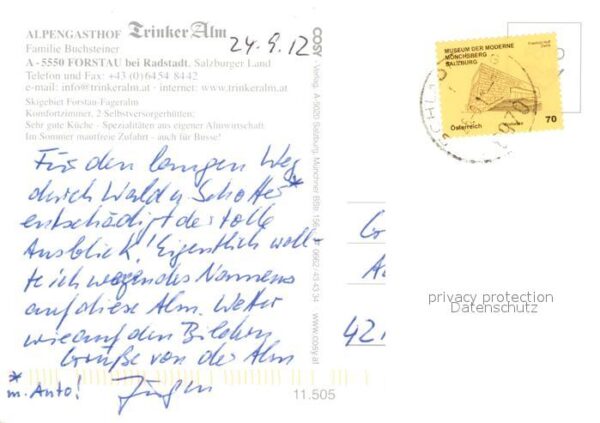 ALPENGASTHOF Trinker Alm
Familie Buchsteiner
A - 5550 FORSTAU bei Radstadt, Salzburger Land
Telefon und Fax: +43 (0)6454 8442
e-mail: info@trinkeralm.at internet: www.trinkeralm.at
Skigebiet Forstau-Fageralm
Komfortzimmer, 2 Selbstversorgerhütten:
Sehr gute Küche - Spezialitäten aus eigener Almwirtschaft.
Im Sommer mautfreie Zufahrt - auch für Busse!
24.9.12
Für den langen Weg
durch Wald u Schotter*
entschädigt der tolle
Ausblick! Eigentlich woll-
te ich wegen des Namens
auf diese Alm. Wetter
wie auf den Bildchen
Grüße von der Alm
Jürgen
* m. Auto!
COSY - Verlag, A-5020 Salzburg, Münchner BStr 156, 0662/43 43 34 www.cosy.at
11.505
MUSEUM DER MODERNE
MÖNCHSBERG
SALZBURG
Österreich
70
42
privacy protection
Datenschutz